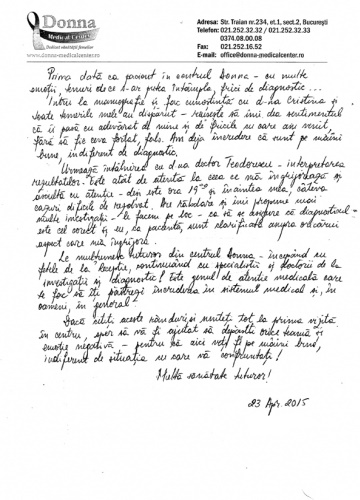 Donna
Medical Center
Dedicat sănătăţii femeilor
www.donna-medicalcenter.ro
Adresa: Str. Traian nr.234, et.1, sect.2, Bucureşti
Telefon: 021.252.32.32 / 021.252.32.33
0374.08.00.08
Fax: 021.252.16.52
E-mail: office@donna-medicalcenter.ro
Prima dată ca pacient în centrul Donna - cu multe
emoţii, temeri de ce s-ar putea întâmpla, frici de diagnostic...
Intru la mamografie şi fac cunoştinţă cu d-na Cristina şi
toate temerile mele au dispărut - reuşeşte să îmi dea sentimentul
că îi pasă cu adevărat de mine şi de fricile cu care am venit,
fără să fie ceva forţat, fals. Am deja încredere că sunt pe mâini
bune, indiferent de diagnostic.
Urmează întâlnirea cu d-na doctor Teodorescu - interpretarea
rezultatelor. Este atât de atentă la ceea ce mă îngrijorează şi
ascultă cu atenţie - deşi este ora 19 şi înaintea mea, câteva
cazuri dificile de rezolvat. Are răbdare şi îmi propune mai
multe investigaţii - le facem pe loc - ca să se asigure că diagnosticul
este cel corect şi eu, ca pacientă, sunt clarificată asupra oricărui
aspect care mă îngrijora.
Le mulţumesc tuturor din centrul Donna - începând cu
fetele de la recepţie, continuând cu specialiştii şi doctorii de la
investigaţii şi diagnostic! Este genul de atenţie medicală care
te fac să îţi păstrezi încrederea în sistemul medical şi, în
oameni, în general.
Dacă citiţi aceste rânduri şi sunteţi tot la prima vizită
în centru, sper să vă fi ajutat să depăşiţi orice teamă şi
emoţie negativă - pentru că aici veţi fi pe mâini bune,
indiferent de situaţia cu care vă confruntaţi!
Multă sănătate tuturor!
23 Apr. 2015